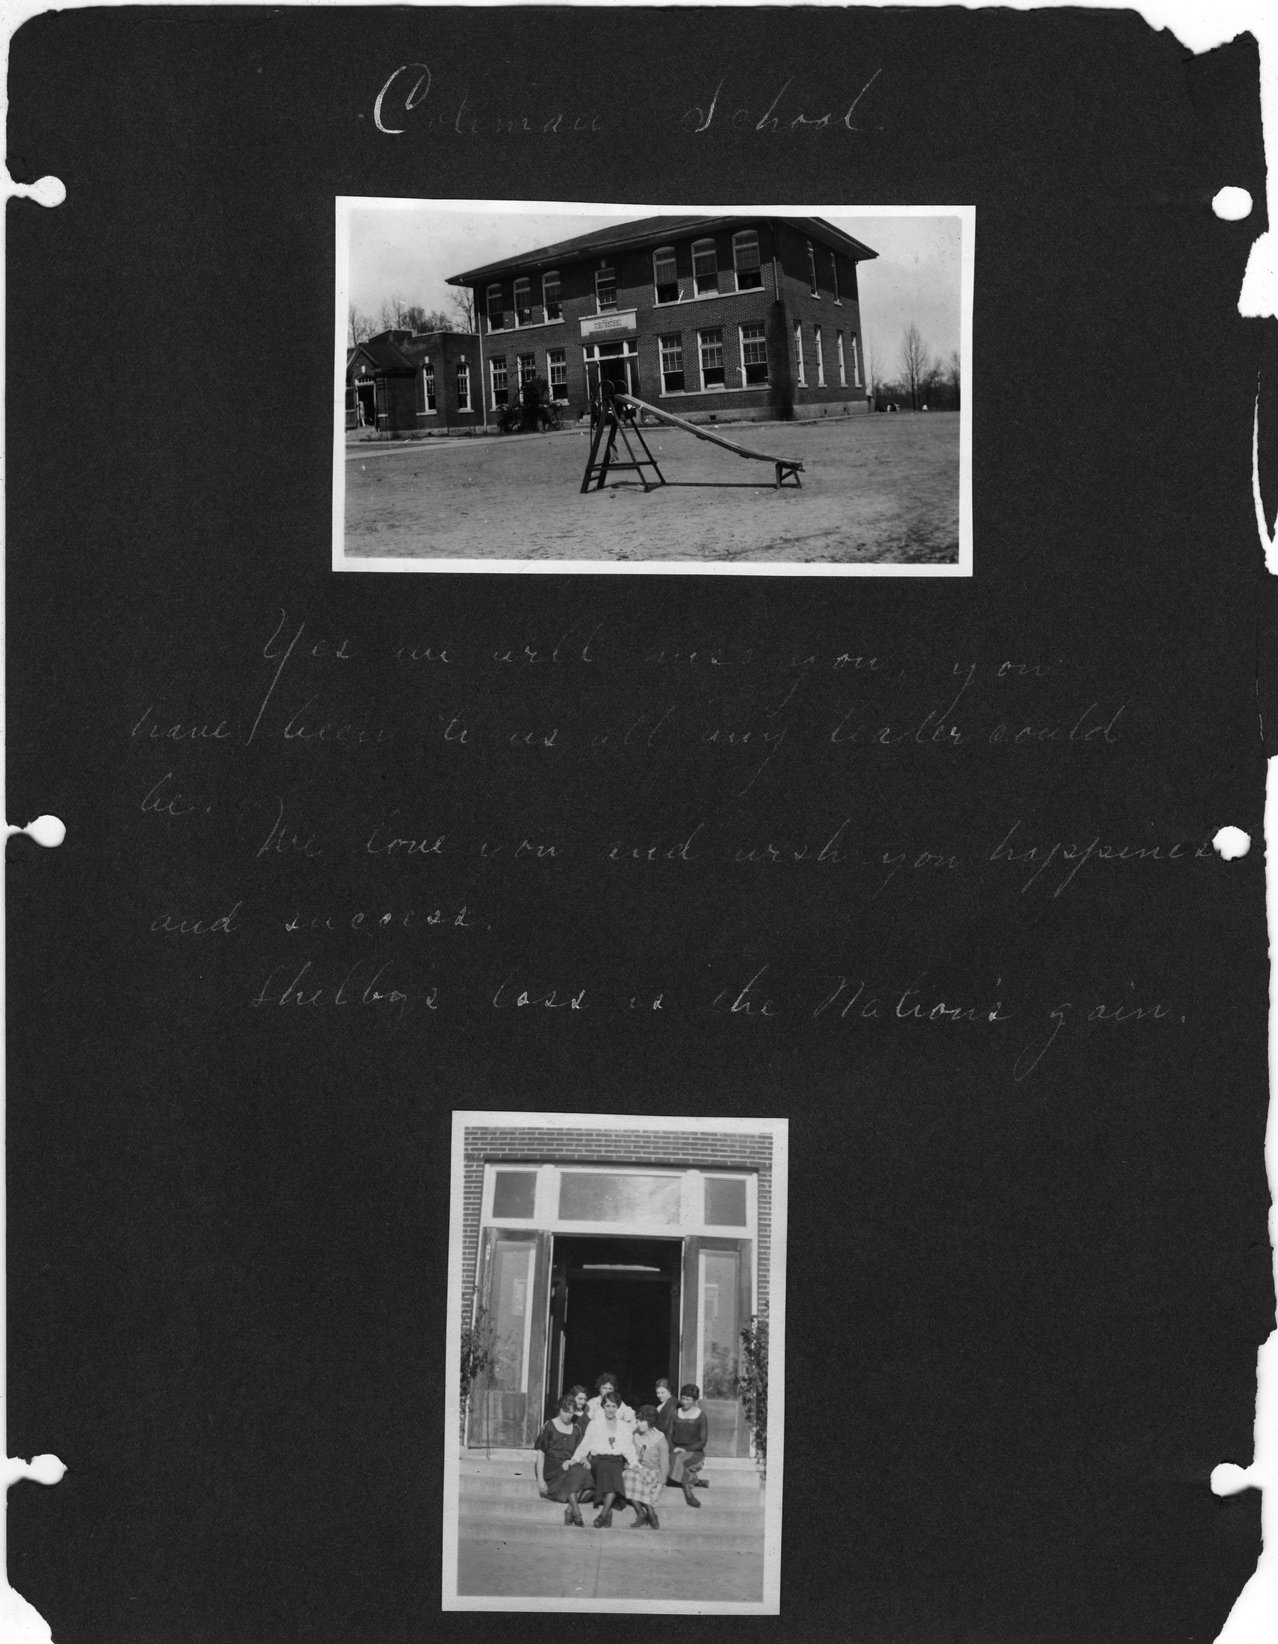 Coleman School.
Yes we will miss you, you
have been to us all any leader could
be.
We love you and wish you happiness
and success.
Shelby's loss is the Nation's gain.